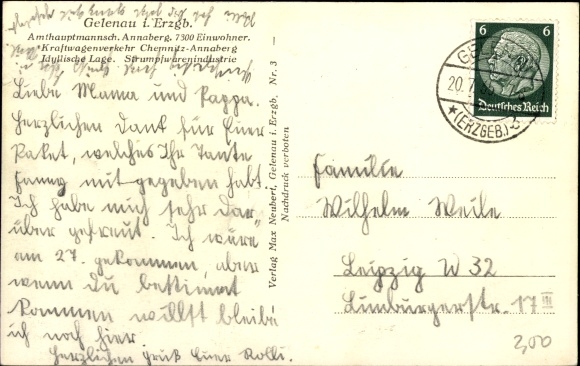 Gelenau i. Erzgb.
Amthauptmannsch. Annaberg, 7300 Einwohner.
Kraftwagenverkehr Chemnitz-Annaberg
Idyllische Lage. Strumpfwarenindustrie
Liebe Mama und Pappa.
Herzlichen Dank für Euer
Paket, welches Ihr Tante
Fanny mit gegeben habt
Ich habe mich sehr dar-
über gefreut. Ich wäre
am 27. gekommen, aber
wenn Du bestimmt
kommen willst bleibe
ich noch hier.
Herzlichen Gruß Euer Rolli.
Verlag Max Neubert, Gelenau i. Erzgb. Nr. 3 —
Nachdruck verboten
6 6
Deutsches Reich
20.7.
(ERZGEB.)
Familie
Wilhelm Weile
Leipzig W 32
Limburgerstr. 17 III
2,00